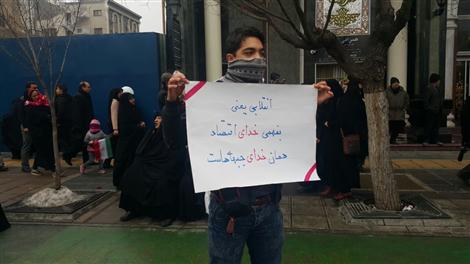 انقلابی یعنی
بفهمی خدای اقتصاد
همان خدای جبهه‌هاست